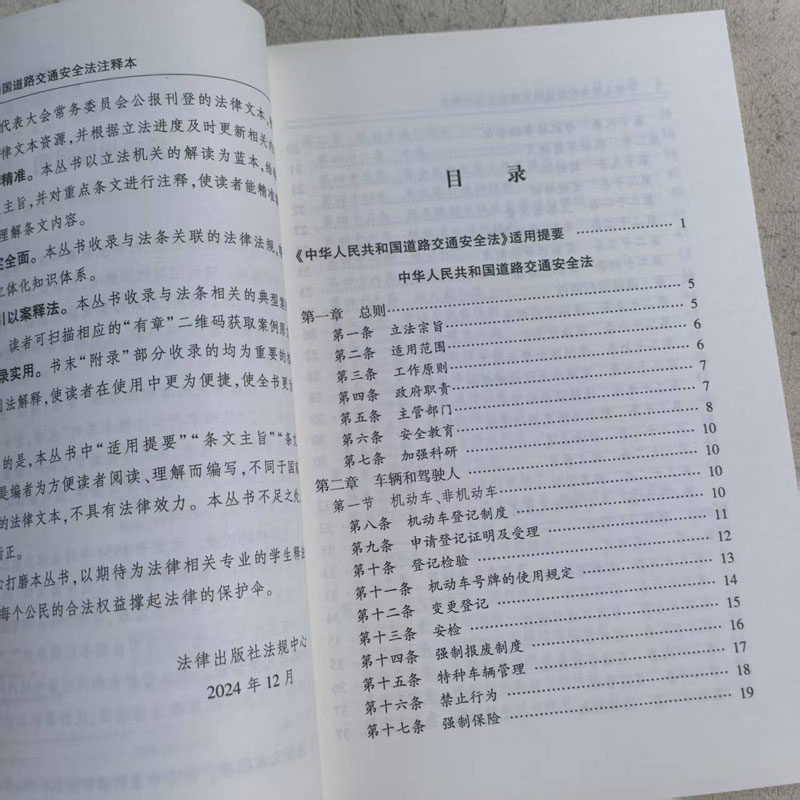 国道路交通安全法注释本
代表大会常务委员会公报刊登的法律文本,
律文本资源,并根据立法进度及时更新相关
精准。本丛书以立法机关的解读为蓝本,
主旨,并对重点条文进行注释,使读者能精准
理解条文内容。
全面。本丛书收录与法条关联的法律法规,
立体化知识体系。
以案释法。本丛书收录与法条相关的典型案
读者可扫描相应的“有章”二维码获取案例原
录实用。书末“附录”部分收录的均为重要的
法解释,使读者在使用中更为便捷,使全书更
的是,本丛书中“适用提要”“条文主旨”“条
是编者为方便读者阅读、理解而编写,不同于国
的法律文本,不具有法律效力。本丛书不足之处
指正。
心打磨本丛书,以期待为法律相关专业的学生释法
每个公民的合法权益撑起法律的保护伞。
法律出版社法规中心
2024年12月
目 录
《中华人民共和国道路交通安全法》适用提要 …… 1
中华人民共和国道路交通安全法
第一章 总则 …… 5
第一条 立法宗旨 …… 5
第二条 适用范围 …… 6
第三条 工作原则 …… 6
第四条 政府职责 …… 7
第五条 主管部门 …… 7
第六条 安全教育 …… 8
第七条 加强科研 …… 10
第二章 车辆和驾驶人 …… 10
第一节 机动车、非机动车 …… 10
第八条 机动车登记制度 …… 10
第九条 申请登记证明及受理 …… 11
第十条 登记检验 …… 12
第十一条 机动车号牌的使用规定 …… 13
第十二条 变更登记 …… 14
第十三条 安检 …… 15
第十四条 强制报废制度 …… 16
第十五条 特种车辆管理 …… 17
第十六条 禁止行为 …… 18
第十七条 强制保险 …… 19